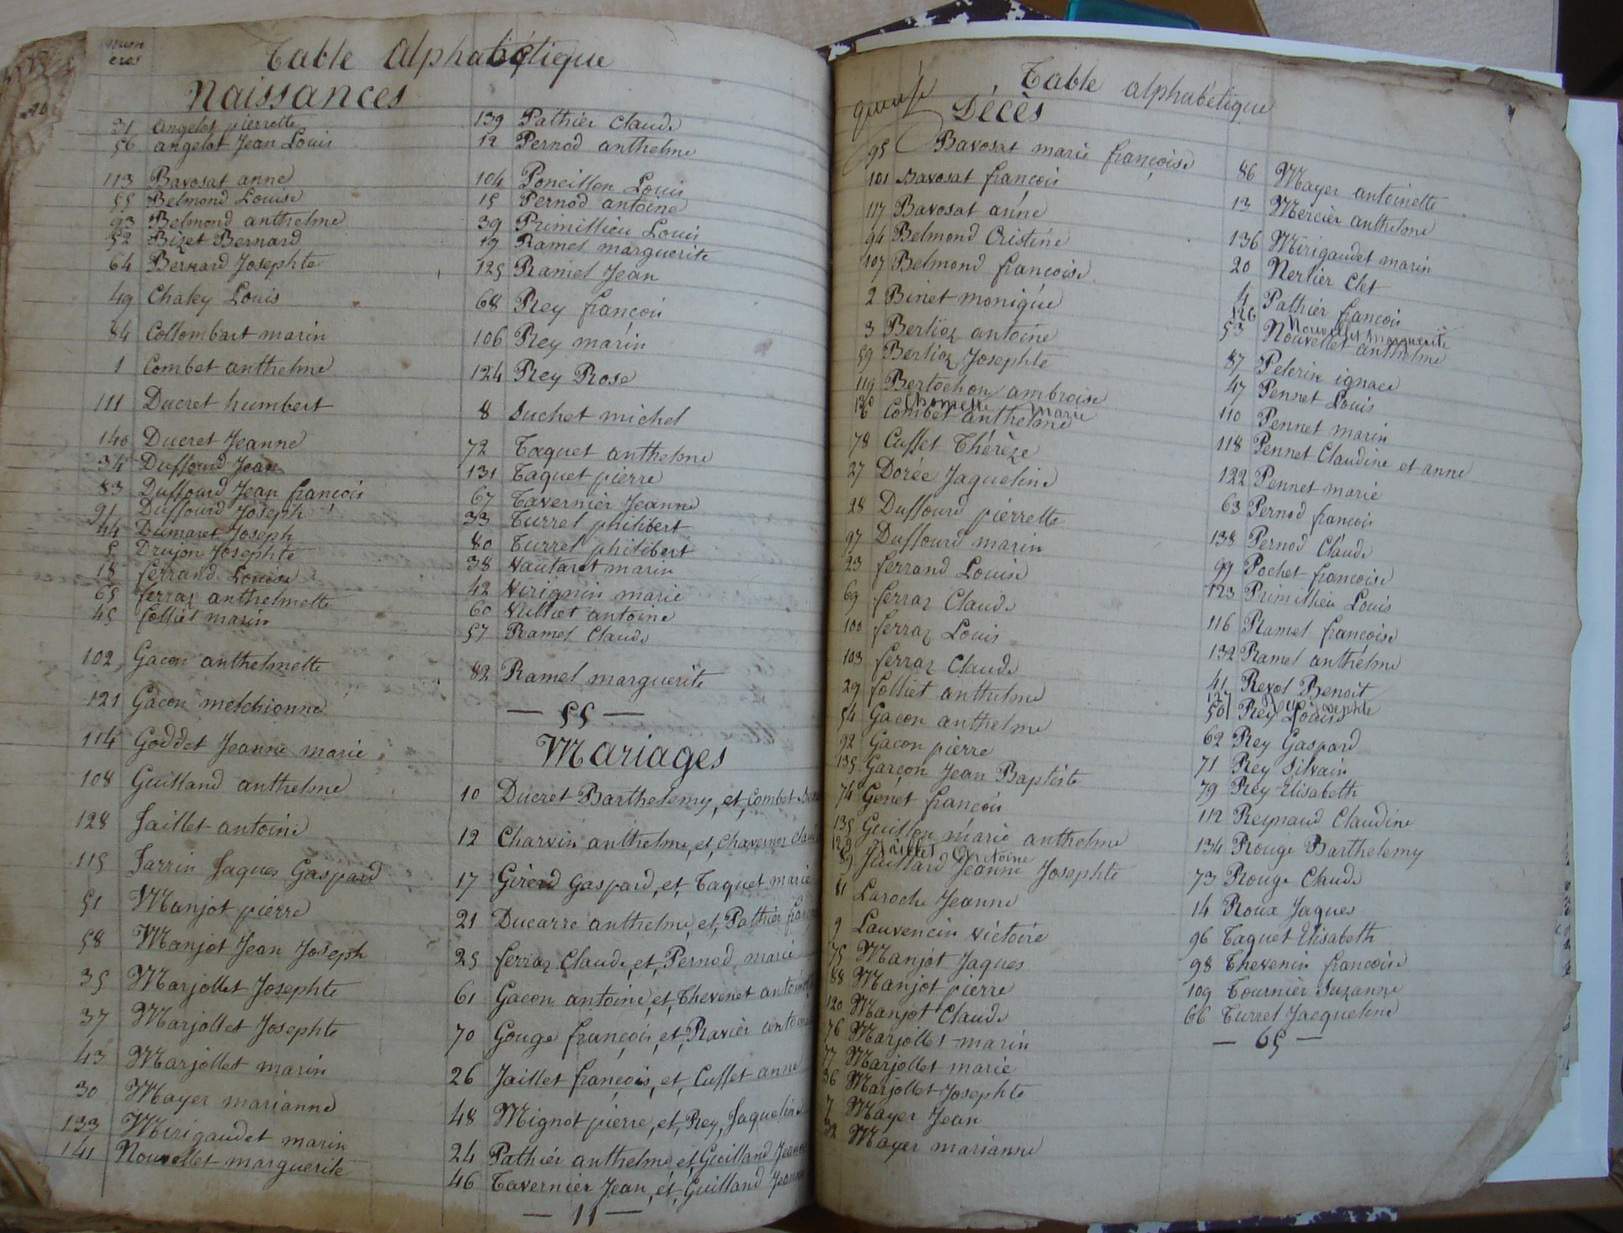 Table Alphabétique
Naissances
31 angelot pierrette
56 angelot Jean Louis
113 Bavosat anne
55 Belmond Louise
93 Belmond anthelme
52 Bizet Bernard
64 Bernard Josephte
49 Chaley Louis
84 Collombart marin
1 Combet anthelme
111 Ducret humbert
140 Ducret Jeanne
34 Duffourd Jean
83 Duffourd Jean françois
91 Duffourd Joseph
44 Dumaret Joseph
5 Drujon Josephte
18 ferrand Louise
65 ferraz anthelmette
45 folliet marin
102 Gacon anthelmette
121 Gacon melchionne
114 Goddet Jeanne marie
108 Guilland anthelme
128 Jaillet antoine
115 Jarrin Jaques Gaspard
51 Manjot pierre
58 Manjot Jean Joseph
35 Marjollet Josephte
37 Marjollet Josephte
43 Marjollet marin
30 Mayer marianne
133 Mirigaudet marin
141 Nouvellet marguerite
139 Pathier Claude
12 Pernod anthelme
104 Poncillon Louis
15 Pernod antoine
39 Primillieu Louis
19 Ramel marguerite
125 Ramel Jean
68 Rey françois
106 Rey marin
124 Rey Rose
8 Suchet michel
72 Taquet anthelme
131 Taquet pierre
67 Tavernier Jeanne
33 Turrel philibert
80 Turrel philibert
38 Vautaret marin
42 Virignin marie
60 Vulliet antoine
57 Ramel Claude
82 Ramel marguerite
— 55 —
Mariages
10 Ducret Barthelemy, et, Combet
12 Charvin anthelme, et, Chavernoz
17 Girerd Gaspard, et, Taquet marie
21 Ducarre anthelme, et, Pathier
25 ferraz Claude, et, Pernod marie
61 Gacon antoine, et, Thevenet
70 Gouge françois, et, Ravier
26 Jaillet françois, et, Cusset anne
48 Mignot pierre, et, Rey, Jaqueline
24 Pathier anthelme, et, Guilland
46 Tavernier Jean, et, Guilland
— 11 —
Table alphabétique
Décès
95 Bavosat marie françoise
101 Bavosat françois
117 Bavosat anne
94 Belmond Cristine
107 Belmond françoise
2 Binet monique
3 Berlioz antoine
59 Berlioz Josephte
119 Bertochon ambroise
Chomette marie
6 Combet anthelme
78 Cusset Thérèze
27 Dorée Jaqueline
28 Duffourd pierrette
97 Duffourd marin
23 ferrand Louise
69 ferraz Claude
100 ferraz Louis
103 ferraz Claude
29 folliet anthelme
54 Gacon anthelme
92 Gacon pierre
135 Garçon Jean Baptiste
74 Genet françois
135 Guillon marie anthelme
129 Jaillet Antoine
89 Jaillard Jeanne Josephte
81 Laroche Jeanne
9 Lauvencin victoire
75 Manjot Jaques
88 Manjot pierre
120 Manjot Claude
76 Marjollet marin
77 Marjollet marie
36 Marjollet Josephte
7 Mayer Jean
32 Mayer marianne
86 Mayer antoinette
13 Mercier anthelme
136 Mirigaudet marin
20 Nerlier Clet
4 Pathier françois
126 Nouvellet marguerite
53 Nouvellet anthelme
87 Pelerin ignace
47 Pennet Louis
110 Pennet marin
118 Pennet Claudine et anne
122 Pennet marie
63 Pernod françois
138 Pernod Claude
99 Pochet françoise
123 Primillieu Louis
116 Ramel françoise
132 Ramel anthelme
41 Revol Benoit
127 Rey Josephte
50 Rey Louise
62 Rey Gaspard
71 Rey Silvain
79 Rey Elisabeth
112 Reynaud Claudine
134 Rouge Barthelemy
73 Rouge Claude
14 Roux Jaques
96 Taquet Elisabeth
98 Thevenin françoise
109 Tournier Suzanne
66 Turrel Jacqueline
— 65 —